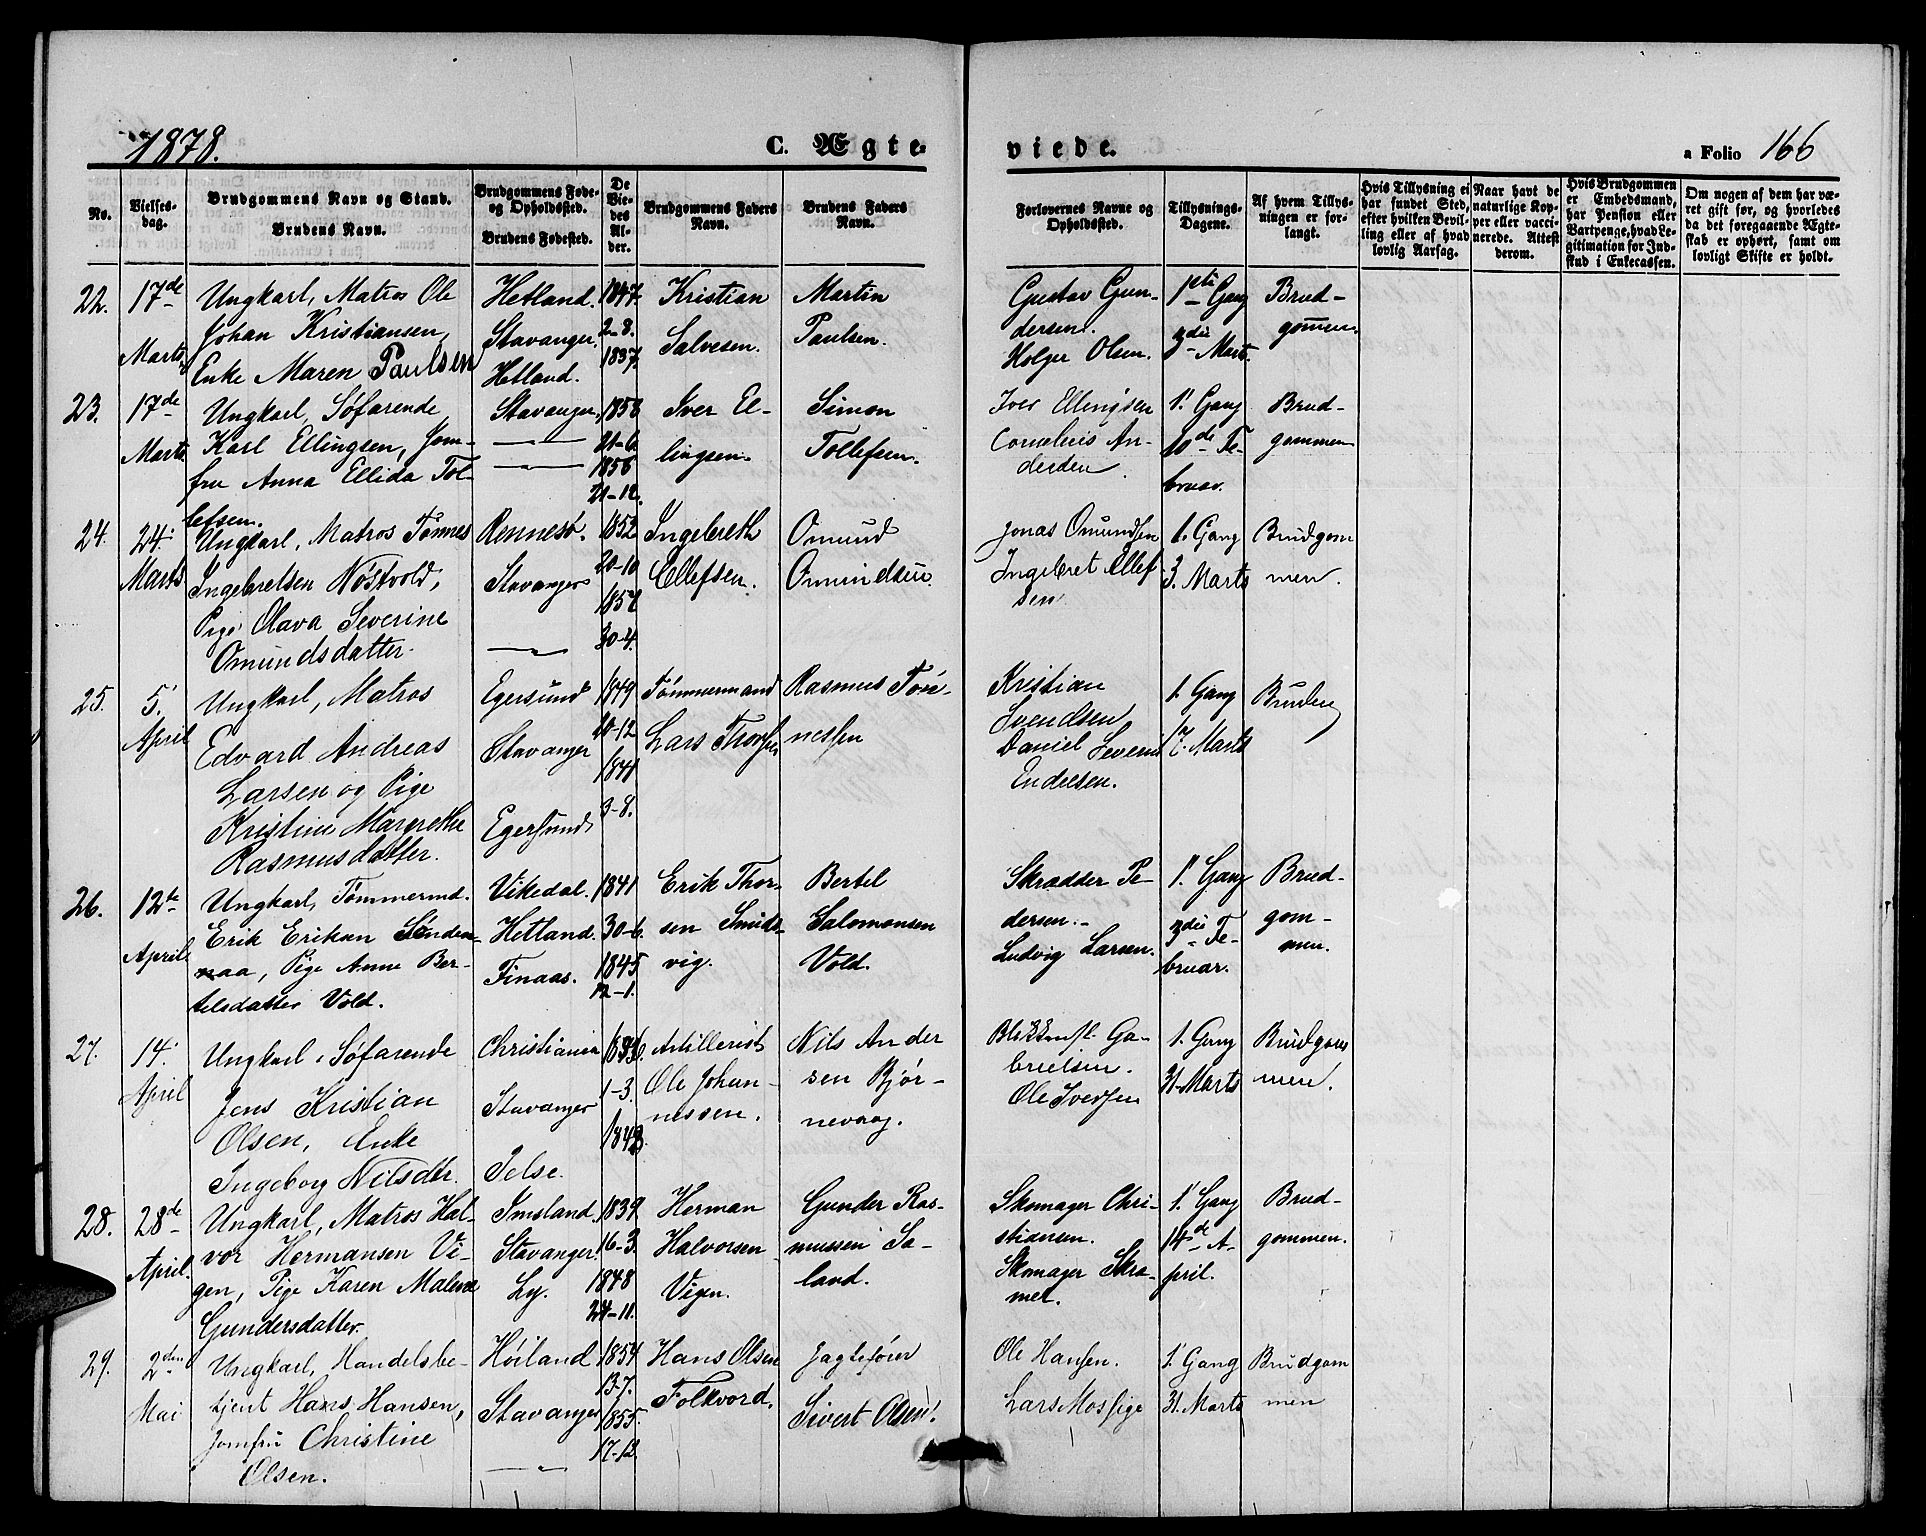 1878.
C. Ægte-
viede.
a Folio 166
No.
Vielses-
dag.
Brudgommens Navn og Stand.
Brudens Navn.
Brudgommens Føde-
og Opholdssted.
Brudens Fødested.
De
Vie-
des
Al-
der.
Brudgommens Faders
Navn.
Brudens Faders
Navn.
Forlovernes Navne og
Opholdssted.
Tillysnings-
Dagene.
Af hvem Tillys-
ningen er for-
langt.
Hvis Tillysning ei
har fundet Sted,
efter hvilken Bevil-
ling eller af hvad
lovlig Aarsag.
Naar havt de
naturlige Kop-
per eller vacci-
nerede. Attest
derom.
Hvis Brudgommen
er Embedsmand,
har Pension eller
Vartpenge, hvad Le-
gitimation for Ind-
skud i Enkecassen.
Om nogen af dem har væ-
ret gift før, og hvorledes
da det foregaaende Ægte-
skab er ophørt, samt om
lovligt Skifte er holdt.
22.
17de
Marts
Ungkarl, Matros Ole
Johan Kristiansen,
Enke Maren Paulsen
Hetland.
Stavanger.
Hetland.
1847.
2-8.
1837.
Kristian
Salvesen.
Martin
Paulsen.
Gustav Gun-
dersen.
Holger Olsen.
1ste Gang
3die Mart.
Brud-
gommen.
23.
17de
Marts
Ungkarl, Søfarende
Karl Ellingsen, Jom-
fru Anna Ellida Tol-
lefsen.
Stavanger.
—"—
—"—
1858
21-6.
1856
21-12.
Iver El-
lingsen.
Simon
Tollefsen.
Iver Ellingsen
Cornelius An-
dersen
1' Gang
10de Fe-
bruar.
Brud-
gommen
24.
24.
Marts
Ungkarl, Matros Tønnes
Ingebretsen Nøstvold,
Pige Olava Severine
Omundsdatter.
Rennesø.
Stavanger
—"—
1852
20-10
1857
30-4.
Ingebreth
Ellefsen.
Omund
Omundsen.
Jonas Omundsen
Ingebret Ellef-
sen
1. Gang
3. Marts
Brudgom
men.
25.
5.
April
Ungkarl, Matros
Edvard Andreas
Larsen og Pige
Kristine Margrethe
Rasmusdatter.
Egersund
Stavanger
Egersund
1849
20-12
1841
3-8.
Tømmermand
Lars Thorsen
Rasmus Tøn-
nessen
Kristian
Svendsen
Daniel Severin
Endresen.
1. Gang
17. Marts
Bruden
26.
12te
April
Ungkarl, Tømmermd.
Erik Eriksen Sønden-
naa, Pige Anne Ber-
telsdatter Vold.
Vikedal.
Hetland.
Finaas.
1841
30-6.
1845
12-1.
Erik Thor-
sen Smids-
vig.
Bertel
Salomonsen
Vold.
Skrædder Pe-
dersen.
Ludvig Larsen.
1' Gang
3die Fe-
bruar.
Brud-
gom-
men.
27.
14.
April
Ungkarl, Søfarende
Jens Kristian
Olsen, Enke
Ingeborg Nilsdtr.
Christiania
Stavanger
Jelse.
1-3.
Artillerist
Ole Johan-
nessen.
Nils Ander
sen Bjør-
nevaag.
Ga-
brielsen.
Ole Iversen
1. Gang
31. Marts
Brudgom
men.
28.
28de
April.
Ungkarl, Matros Hal-
vor Hermansen Vi-
gen, Pige Karen Malene
Gundersdatter.
Imsland.
Stavanger
Ly.
1839
16-3.
1848
24-11.
Herman
Halvorsen
Vigen.
Gunder Ras-
mussen Sa-
land.
Skomager Chri-
stiansen.
Skomager Skra-
mer.
1' Gang
14de A-
pril.
Brud-
gommen.
29.
2den
Mai
Ungkarl, Handelsbe-
tjent Hans Hansen,
Jomfru Christine
Olsen.
Høiland
Stavanger
—"—
1854
13-7.
1855.
17-12.
Hans Olsen
Folkvord.
Jagtefører
Sivert Olsen.
Ole Hansen.
Lars Mossige
1. Gang
31. Marts
Brudgom
men